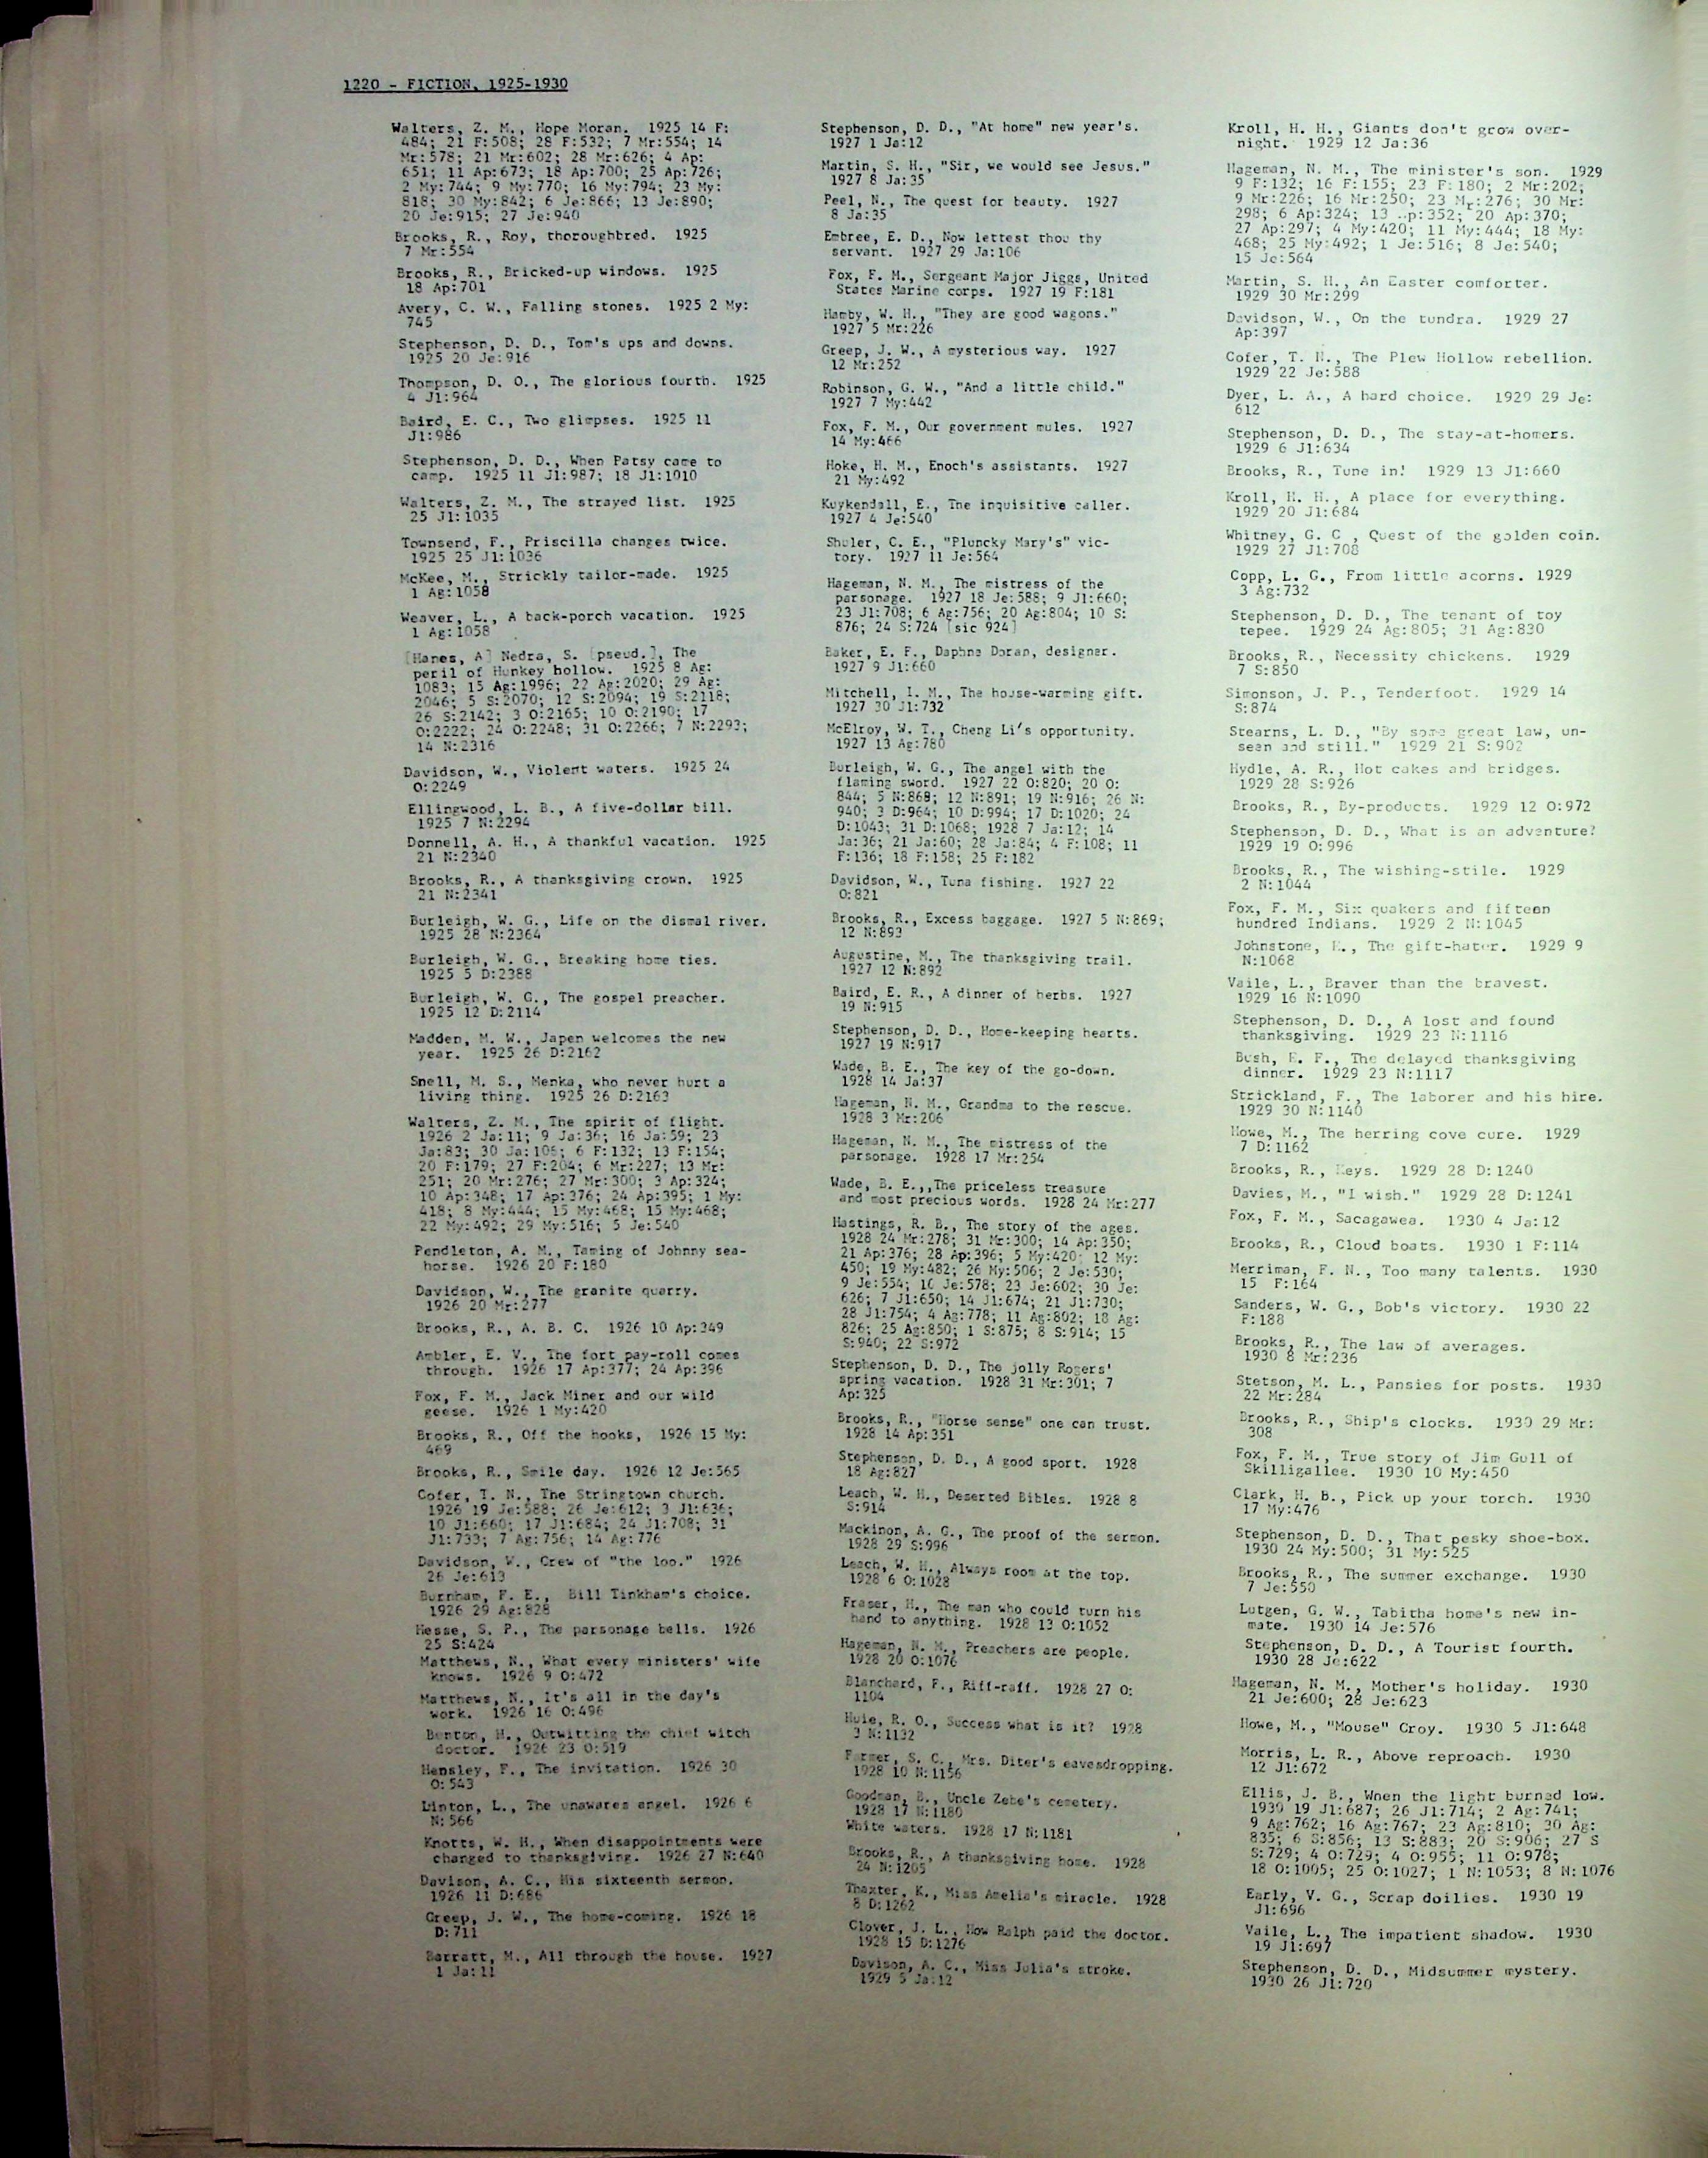 1220 - FICTION, 1925-1930
Walters, Z. M., Hope Moran. 1925 14 F:
484; 21 F:508; 28 F:532; 7 Mr:554; 14
Mr:578; 21 Mr:602; 28 Mr:626; 4 Ap:
651; 11 Ap:673; 18 Ap:700; 25 Ap:726;
2 My:744; 9 My:770; 16 My:794; 23 My:
818; 30 My:842; 6 Je:866; 13 Je:890;
20 Je:915; 27 Je:940
Brooks, R., Roy, thoroughbred. 1925
7 Mr:554
Brooks, R., Bricked-up windows. 1925
18 Ap:701
Avery, C. W., Falling stones. 1925 2 My:
745
Stephenson, D. D., Tom's ups and downs.
1925 20 Je:916
Thompson, D. O., The glorious fourth. 1925
4 Jl:964
Baird, E. C., Two glimpses. 1925 11
Jl:986
Stephenson, D. D., When Patsy came to
camp. 1925 11 Jl:987; 18 Jl:1010
Walters, Z. M., The strayed list. 1925
25 Jl:1035
Townsend, F., Priscilla changes twice.
1925 25 Jl:1036
McKee, M., Strickly tailor-made. 1925
1 Ag:1058
Weaver, L., A back-porch vacation. 1925
1 Ag:1058
[Hanes, A] Nedra, S. [pseud.], The
peril of Hunkey hollow. 1925 8 Ag:
1083; 15 Ag:1996; 22 Ag:2020; 29 Ag:
2046; 5 S:2070; 12 S:2094; 19 S:2118;
26 S:2142; 3 O:2165; 10 O:2190; 17
O:2222; 24 O:2248; 31 O:2266; 7 N:2293;
14 N:2316
Davidson, W., Violent waters. 1925 24
O:2249
Ellingwood, L. B., A five-dollar bill.
1925 7 N:2294
Donnell, A. H., A thankful vacation. 1925
21 N:2340
Brooks, R., A thanksgiving crown. 1925
21 N:2341
Burleigh, W. G., Life on the dismal river.
1925 28 N:2364
Burleigh, W. G., Breaking home ties.
1925 5 D:2388
Burleigh, W. G., The gospel preacher.
1925 12 D:2114
Madden, M. W., Japen welcomes the new
year. 1925 26 D:2162
Snell, M. S., Menka, who never hurt a
living thing. 1925 26 D:2163
Walters, Z. M., The spirit of flight.
1926 2 Ja:11; 9 Ja:36; 16 Ja:59; 23
Ja:83; 30 Ja:106; 6 F:132; 13 F:154;
20 F:179; 27 F:204; 6 Mr:227; 13 Mr:
251; 20 Mr:276; 27 Mr:300; 3 Ap:324;
10 Ap:348; 17 Ap:376; 24 Ap:395; 1 My:
418; 8 My:444; 15 My:468; 15 My:468;
22 My:492; 29 My:516; 5 Je:540
Pendleton, A. M., Taming of Johnny sea-
horse. 1926 20 F:180
Davidson, W., The granite quarry.
1926 20 Mr:277
Brooks, R., A. B. C. 1926 10 Ap:349
Ambler, E. V., The fort pay-roll comes
through. 1926 17 Ap:377; 24 Ap:396
Fox, F. M., Jack Miner and our wild
geese. 1926 1 My:420
Brooks, R., Off the hooks, 1926 15 My:
469
Brooks, R., Smile day. 1926 12 Je:565
Cofer, T. N., The Stringtown church.
1926 19 Je:588; 26 Je:612; 3 Jl:636;
10 Jl:660; 17 Jl:684; 24 Jl:708; 31
Jl:733; 7 Ag:756; 14 Ag:776
Davidson, W., Crew of "the loo." 1926
26 Je:613
Burnham, F. E., Bill Tinkham's choice.
1926 29 Ag:828
Hesse, S. P., The parsonage bells. 1926
25 S:424
Matthews, N., What every ministers' wife
knows. 1926 9 O:472
Matthews, N., It's all in the day's
work. 1926 16 O:496
Benton, H., Outwitting the chief witch
doctor. 1926 23 O:519
Hensley, F., The invitation. 1926 30
O:543
Linton, L., The unawares angel. 1926 6
N:566
Knotts, W. H., When disappointments were
changed to thanksgiving. 1926 27 N:640
Davison, A. C., His sixteenth sermon.
1926 11 D:686
Greep, J. W., The home-coming. 1926 18
D:711
Barratt, M., All through the house. 1927
1 Ja:11
Stephenson, D. D., "At home" new year's.
1927 1 Ja:12
Martin, S. H., "Sir, we would see Jesus."
1927 8 Ja:35
Peel, N., The quest for beauty. 1927
8 Ja:35
Embree, E. D., Now lettest thou thy
servant. 1927 29 Ja:106
Fox, F. M., Sergeant Major Jiggs, United
States Marine corps. 1927 19 F:181
Hamby, W. H., "They are good wagons."
1927 5 Mr:226
Greep, J. W., A mysterious way. 1927
12 Mr:252
Robinson, G. W., "And a little child."
1927 7 My:442
Fox, F. M., Our government mules. 1927
14 My:466
Hoke, H. M., Enoch's assistants. 1927
21 My:492
Kuykendall, E., The inquisitive caller.
1927 4 Je:540
Shuler, C. E., "Pluncky Mary's" vic-
tory. 1927 11 Je:564
Hageman, N. M., The mistress of the
parsonage. 1927 18 Je:588; 9 Jl:660;
23 Jl:708; 6 Ag:756; 20 Ag:804; 10 S:
876; 24 S:724 [sic 924]
Baker, E. F., Daphne Doran, designer.
1927 9 Jl:660
Mitchell, I. M., The house-warming gift.
1927 30 Jl:732
McElroy, W. T., Cheng Li's opportunity.
1927 13 Ag:780
Burleigh, W. G., The angel with the
flaming sword. 1927 22 O:820; 20 O:
844; 5 N:868; 12 N:891; 19 N:916; 26 N:
940; 3 D:964; 10 D:994; 17 D:1020; 24
D:1043; 31 D:1068; 1928 7 Ja:12; 14
Ja:36; 21 Ja:60; 28 Ja:84; 4 F:108; 11
F:136; 18 F:158; 25 F:182
Davidson, W., Tuna fishing. 1927 22
O:821
Brooks, R., Excess baggage. 1927 5 N:869;
12 N:893
Augustine, M., The thanksgiving trail.
1927 12 N:892
Baird, E. R., A dinner of herbs. 1927
19 N:915
Stephenson, D. D., Home-keeping hearts.
1927 19 N:917
Wade, B. E., The key of the go-down.
1928 14 Ja:37
Hageman, N. M., Grandma to the rescue.
1928 3 Mr:206
Hageman, N. M., The mistress of the
parsonage. 1928 17 Mr:254
Wade, B. E.,,The priceless treasure
and most precious words. 1928 24 Mr:277
Hastings, R. B., The story of the ages.
1928 24 Mr:278; 31 Mr:300; 14 Ap:350;
21 Ap:376; 28 Ap:396; 5 My:420; 12 My:
450; 19 My:482; 26 My:506; 2 Je:530;
9 Je:554; 16 Je:578; 23 Je:602; 30 Je:
626; 7 Jl:650; 14 Jl:674; 21 Jl:730;
28 Jl:754; 4 Ag:778; 11 Ag:802; 18 Ag:
826; 25 Ag:850; 1 S:875; 8 S:914; 15
S:940; 22 S:972
Stephenson, D. D., The jolly Rogers'
spring vacation. 1928 31 Mr:301; 7
Ap:325
Brooks, R., "Horse sense" one can trust.
1928 14 Ap:351
Stephenson, D. D., A good sport. 1928
18 Ag:827
Leach, W. H., Deserted Bibles. 1928 8
S:914
Mackinon, A. G., The proof of the sermon.
1928 29 S:996
Leach, W. H., Always room at the top.
1928 6 O:1028
Fraser, H., The man who could turn his
hand to anything. 1928 13 O:1052
Hageman, N. M., Preachers are people.
1928 20 O:1076
Blanchard, F., Riff-raff. 1928 27 O:
1104
Huie, R. O., Success what is it? 1928
3 N:1132
Farmer, S. C., Mrs. Diter's eavesdropping.
1928 10 N:1156
Goodman, B., Uncle Zebe's cemetery.
1928 17 N:1180
White waters. 1928 17 N:1181
Brooks, R., A thanksgiving home. 1928
24 N:1205
Thaxter, K., Miss Amelia's miracle. 1928
8 D:1262
Clover, J. L., How Ralph paid the doctor.
1928 15 D:1276
Davison, A. C., Miss Julia's stroke.
1929 5 Ja:12
Kroll, H. H., Giants don't grow over-
night. 1929 12 Ja:36
Hageman, N. M., The minister's son. 1929
9 F:132; 16 F:155; 23 F:180; 2 Mr:202;
9 Mr:226; 16 Mr:250; 23 Mr:276; 30 Mr:
298; 6 Ap:324; 13 .p:352; 20 Ap:370;
27 Ap:297; 4 My:420; 11 My:444; 18 My:
468; 25 My:492; 1 Je:516; 8 Je:540;
15 Je:564
Martin, S. H., An Easter comforter.
1929 30 Mr:299
Davidson, W., On the tundra. 1929 27
Ap:397
Cofer, T. N., The Plew Hollow rebellion.
1929 22 Je:588
Dyer, L. A., A hard choice. 1929 29 Je:
612
Stephenson, D. D., The stay-at-homers.
1929 6 Jl:634
Brooks, R., Tune in! 1929 13 Jl:660
Kroll, H. H., A place for everything.
1929 20 Jl:684
Whitney, G. C , Quest of the golden coin.
1929 27 Jl:708
Copp, L. G., From little acorns. 1929
3 Ag:732
Stephenson, D. D., The tenant of toy
tepee. 1929 24 Ag:805; 31 Ag:830
Brooks, R., Necessity chickens. 1929
7 S:850
Simonson, J. P., Tenderfoot. 1929 14
S:874
Stearns, L. D., "By some great law, un-
seen and still." 1929 21 S:902
Hydle, A. R., Hot cakes and bridges.
1929 28 S:926
Brooks, R., By-products. 1929 12 O:972
Stephenson, D. D., What is an adventure?
1929 19 O:996
Brooks, R., The wishing-stile. 1929
2 N:1044
Fox, F. M., Six quakers and fifteen
hundred Indians. 1929 2 N:1045
Johnstone, The gift-hater. 1929 9
N:1068
Vaile, L., Braver than the bravest.
1929 16 N:1090
Stephenson, D. D., A lost and found
thanksgiving. 1929 23 N:1116
Bush, F., The delayed thanksgiving
dinner. 1929 23 N:1117
Strickland, F., The laborer and his hire.
1929 30 N:1140
Howe, M., The herring cove cure. 1929
7 D:1162
Brooks, R., Keys. 1929 28 D:1240
Davies, M., "I wish." 1929 28 D:1241
Fox, F. M., Sacagawea. 1930 4 Ja:12
Brooks, R., Cloud boats. 1930 1 F:114
Merriman, F. N., Too many talents. 1930
15 F:164
Sanders, W. G., Bob's victory. 1930 22
F:188
Brooks, R., The law of averages.
1930 8 Mr:236
Stetson, M. L., Pansies for posts. 1930
22 Mr:284
Brooks, R., Ship's clocks. 1930 29 Mr:
308
Fox, F. M., True story of Jim Gull of
Skilligallee. 1930 10 My:450
Clark, H. B., Pick up your torch. 1930
17 My:476
Stephenson, D. D., That pesky shoe-box.
1930 24 My:500; 31 My:525
Brooks, R., The summer exchange. 1930
7 Je:550
Lutgen, G. W., Tabitha home's new in-
mate. 1930 14 Je:576
Stephenson, D. D., A Tourist fourth.
1930 28 Je:622
Hageman, N. M., Mother's holiday. 1930
21 Je:600; 28 Je:623
Howe, M., "Mouse" Croy. 1930 5 Jl:648
Morris, L. R., Above reproach. 1930
12 Jl:672
Ellis, J. B., Wnen the light burned low.
1930 19 Jl:687; 26 Jl:714; 2 Ag:741;
9 Ag:762; 16 Ag:767; 23 Ag:810; 30 Ag:
835; 6 S:856; 13 S:883; 20 S:906; 27 S
S:729; 4 O:729; 4 O:955; 11 O:978;
18 O:1005; 25 O:1027; 1 N:1053; 8 N:1076
Early, V. G., Scrap doilies. 1930 19
Jl:696
Vaile, L., The impatient shadow. 1930
19 Jl:697
Stephenson, D. D., Midsummer mystery.
1930 26 Jl:720